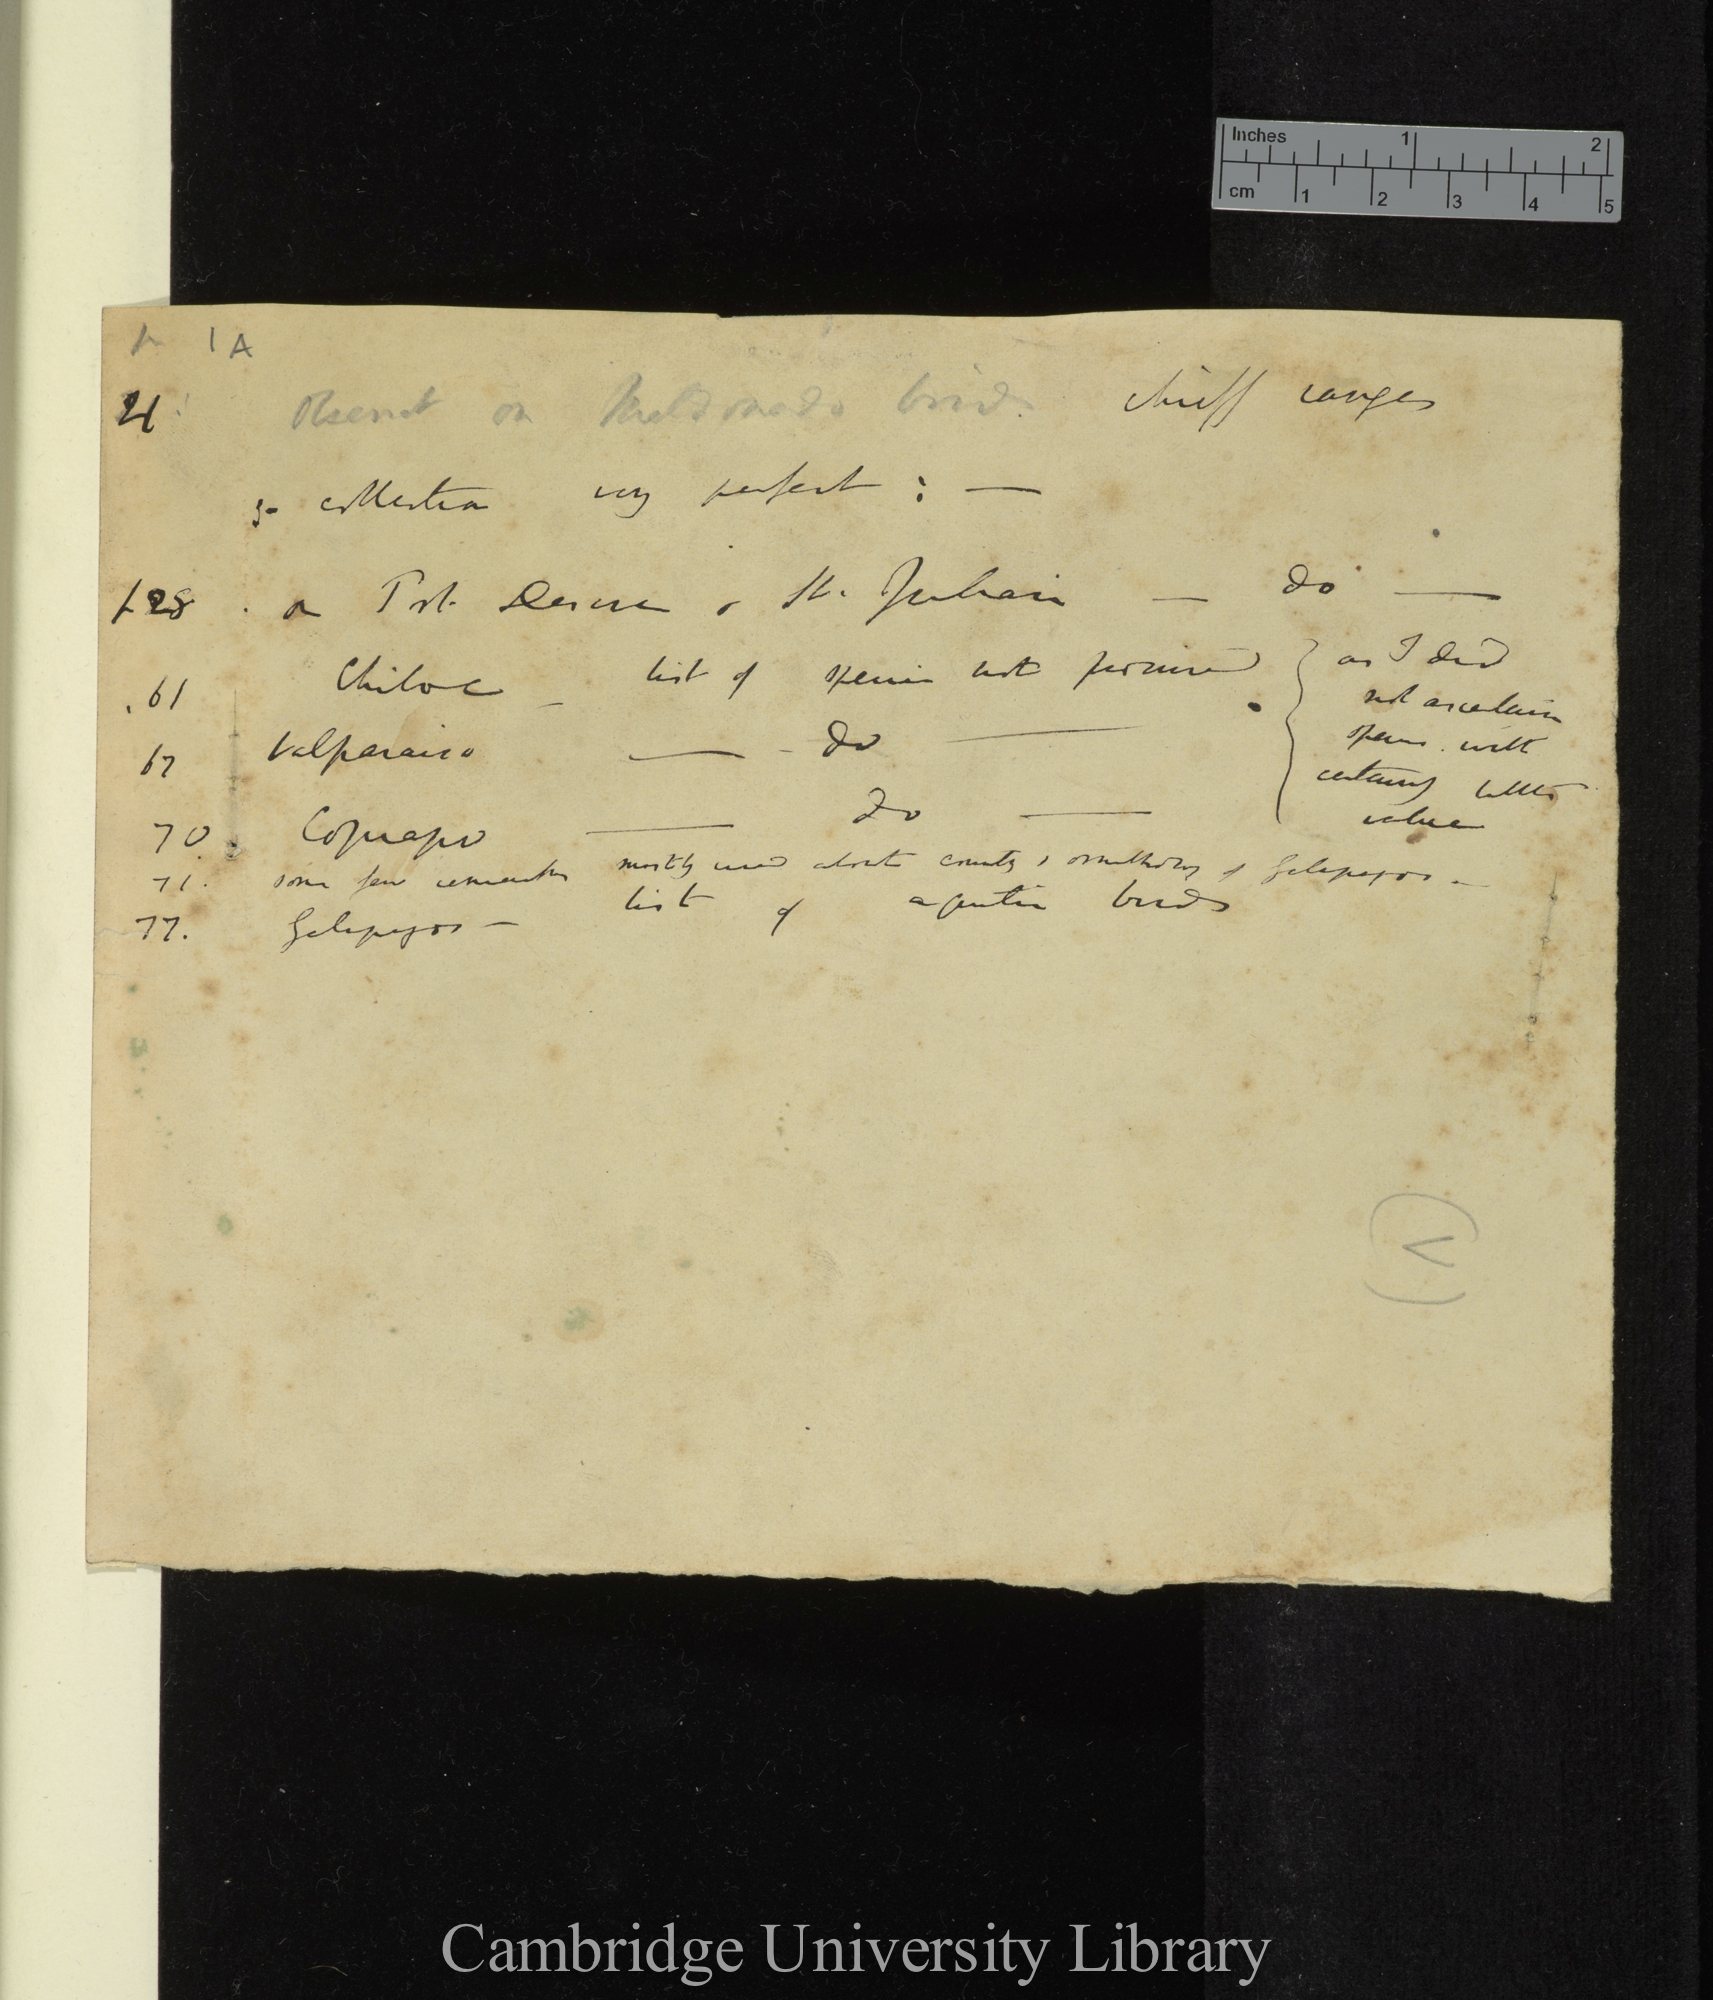 Inches 1 2
cm 1 2 3 4 5
1A
21 Observat on Maldonado birds. chiefly ranges
collection very perfect : —
p28 . on Port Desire & St. Julian — do —
.61 Chiloe — list of species not persevered } as I did
not ascertain
67 Valparaiso — do — species with
certainty little
value
70. Copiapo — do —
71. some few remarks mostly used about country & ornithology of Galapagos —
77. Galapagos — list of aquatic birds
(V)
Cambridge University Library